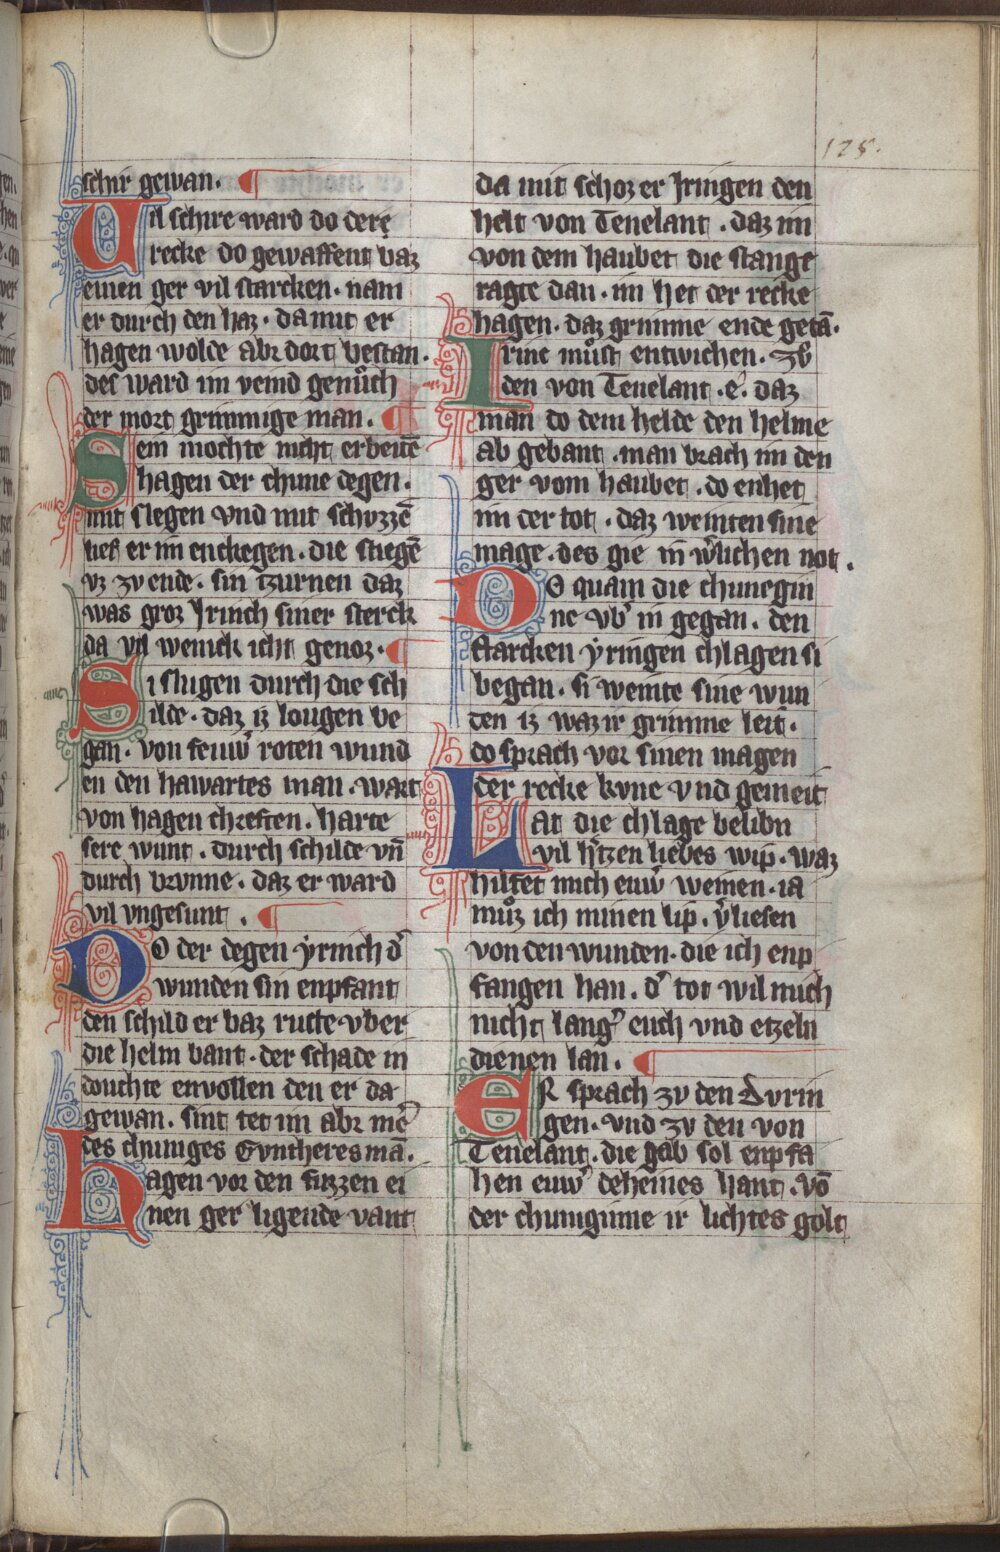 125.
schir gewan.
Uil schire ward do der
recke do gewaffent baz
einen ger vil starcken. nam
er durch den haz. da mit er
hagen wolde abr dort bestan.
des ward im veind genuͦch
der mort grimmige man.
Sem mochte nicht erbeitē
hagen der chune degen.
mit slegen vnd mit schuzzē
lief er im enckegen. die stiegē
vz zv ende. sin tzurnen daz
was groz Jrinch siner sterck
da vil wenick icht genoz.
Si slugen durch die sch
ilde. daz iz lougen be
gan. von feuw̓ roten wund
en den hawartes man. wart
von hagen chreften. harte
sere wunt. durch schilde vn̄
durch brvnne. daz er ward
vil vngesunt.
Do der degen ẏrinch d̓
wunden sin enpfant
den schild er baz ructe vber
die helm bant. der schade in
douchte envollen den er da
gewan. sint tet im abr me̓
des chuniges Gvntheres mā.
Hagen vor den fuzzen ei
nen ger ligende vant
da mit schoz er Jringen den
helt von Tenelant. daz im
von dem haubet die stange
ragte dan. im het der recke
hagen. daz grimme ende getā.
Irinc muͦst entwichen. zv̓
den von Tenelant. e. daz
man do dem helde den helme
ab gebant. man brach im den
ger vom haubet. do enhet
im der tot. daz weinten sine
mage. des gie in w̓lichen not.
Do quam die chunegin
ne vb̓ in gegan. den
starcken ẏringen chlagen si
began. si weinte sine wun
den iz waz ir grimme leit.
do sprach vor sinen magen
der recke kvne vnd gemeit
Lat die chlage belibn
vil h̓tzen liebes wip. waz
hilfet mich euw̓ weinen. ia
muͦz ich minen lip. v̓liesen
von den wunden. die ich enp
fangen han. d̓ tot wil mich
nicht lang̓ euch vnd etzeln
dienen lan.
ER sprach zv den dvrin
gen. vnd zv den von
Tenelant. die gab sol enpfa
hen euw̓ deheines hant. vō
der chuniginne ir lichtes golt